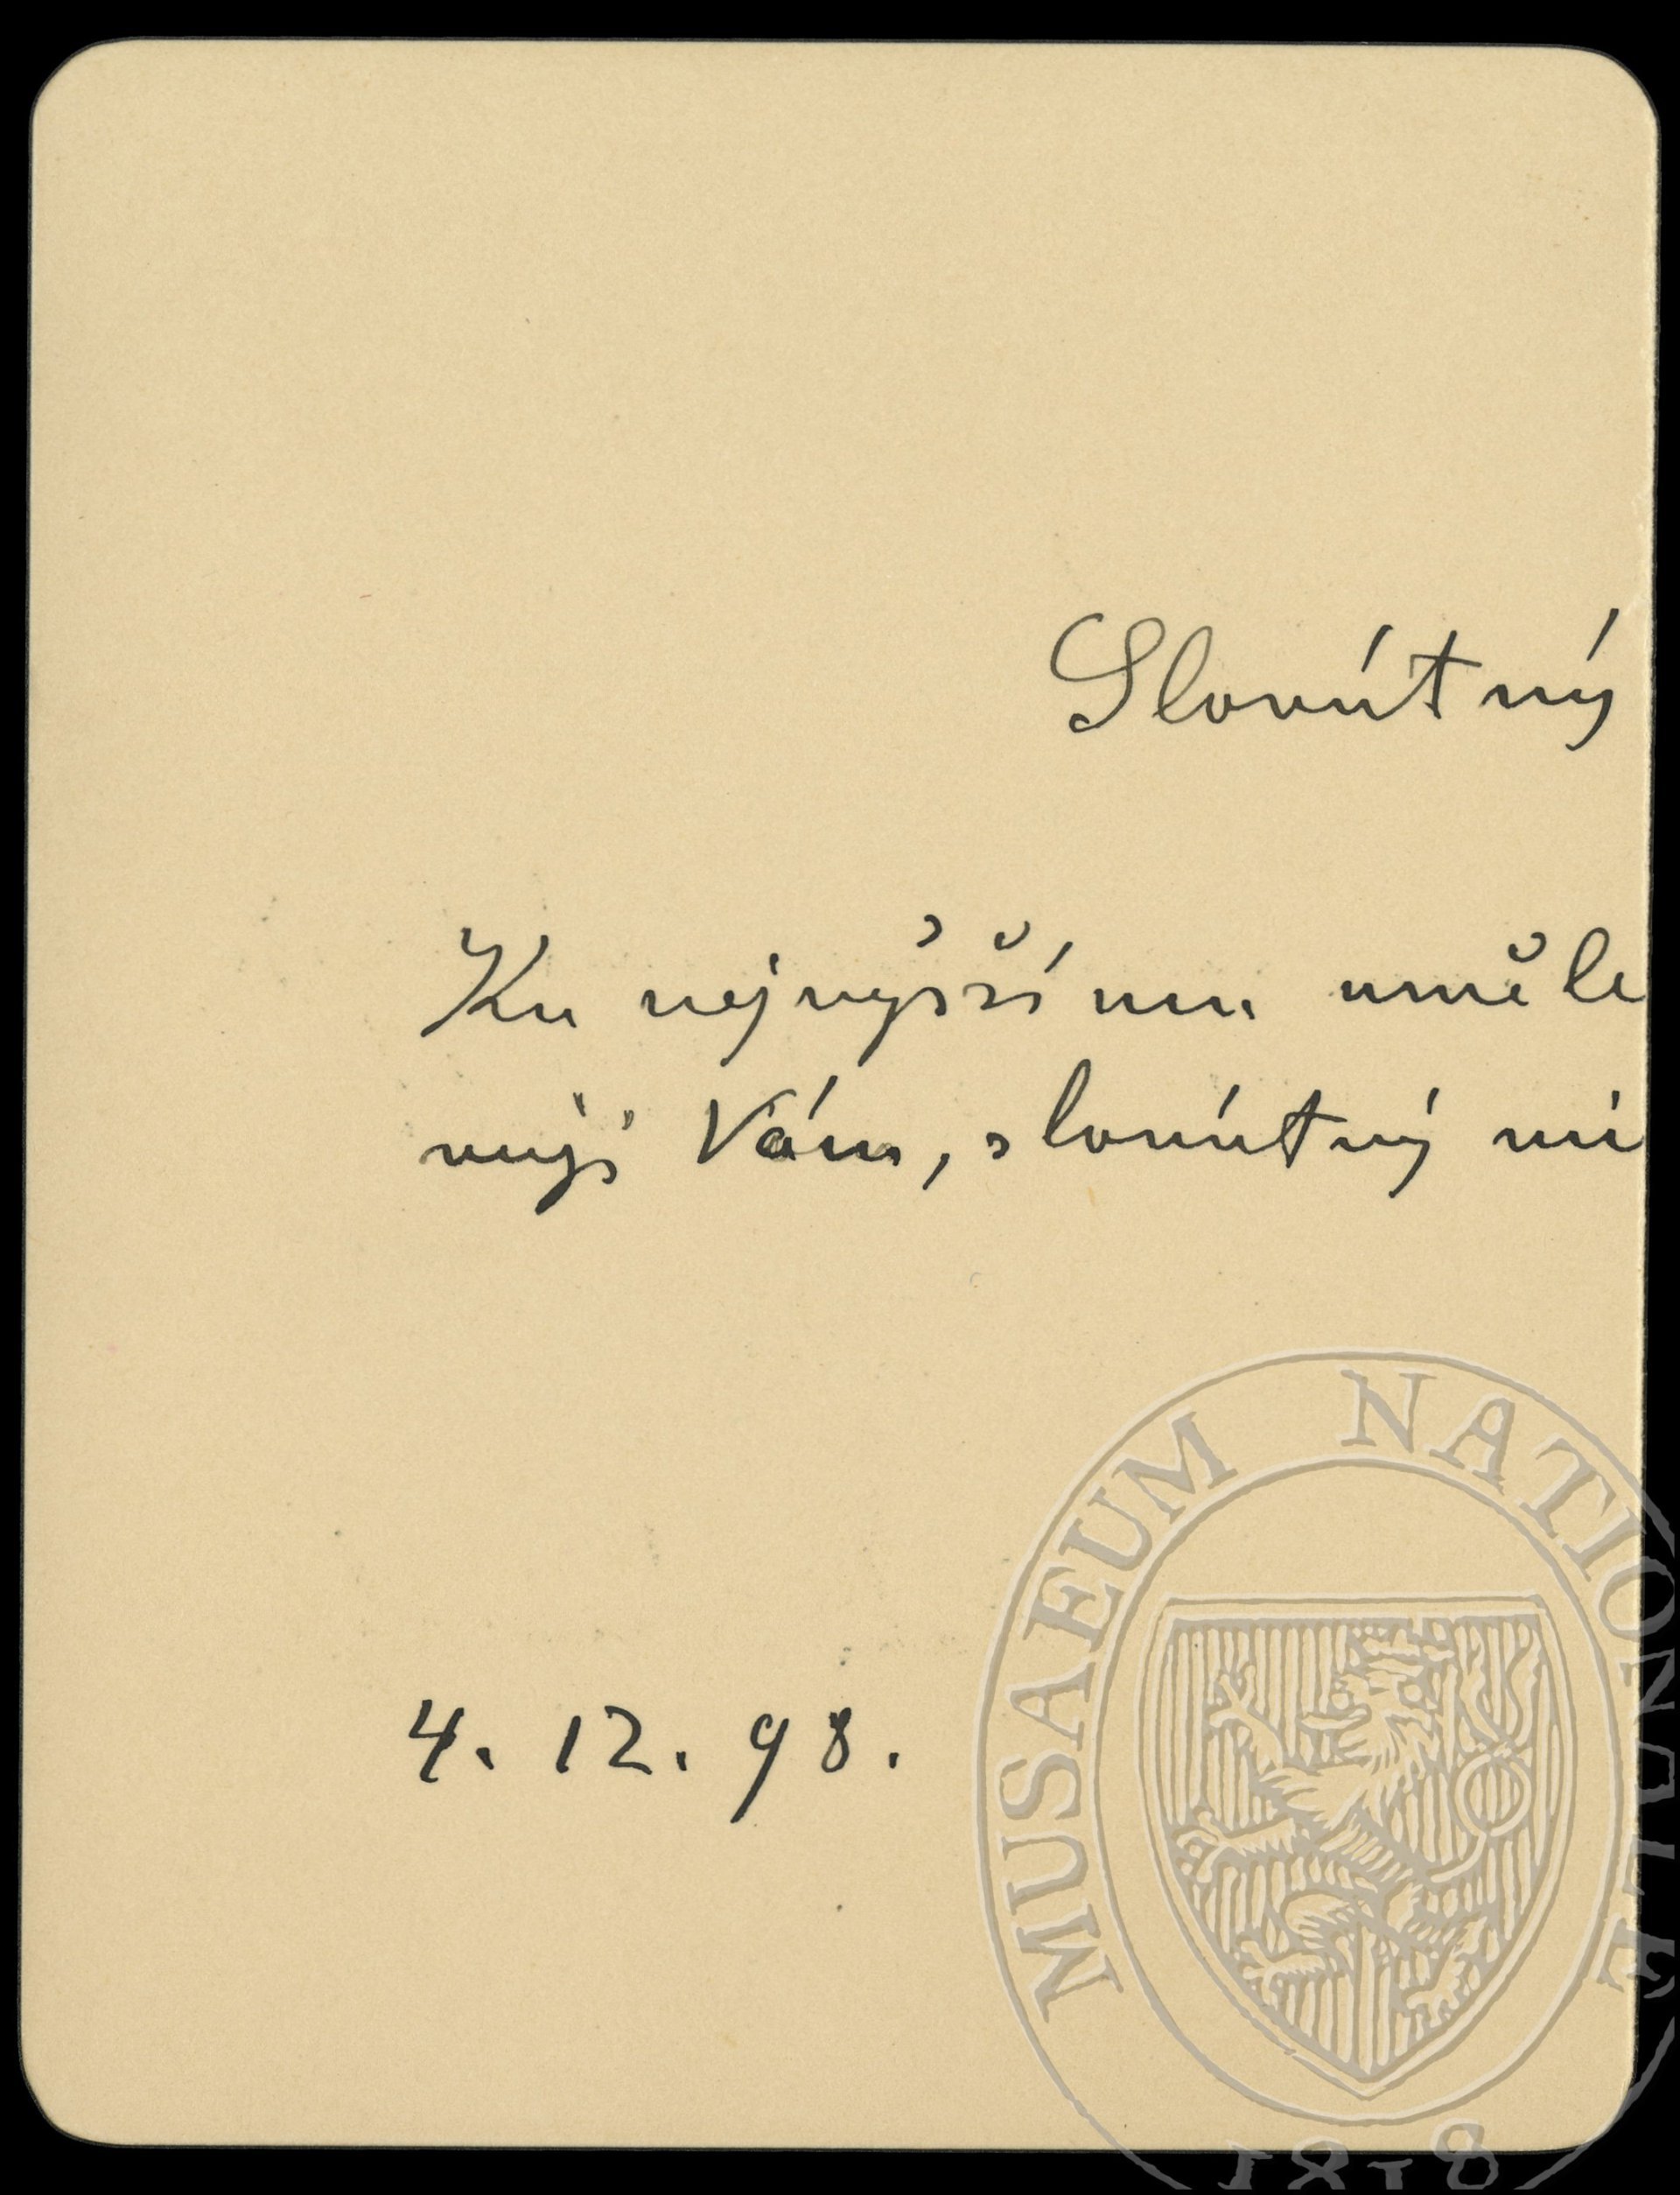 Slovútný
Ku nejvyššímu uměle
nují Vám, slovútný mi
4. 12. 98.
MUSAEUM NATIONALE
1818